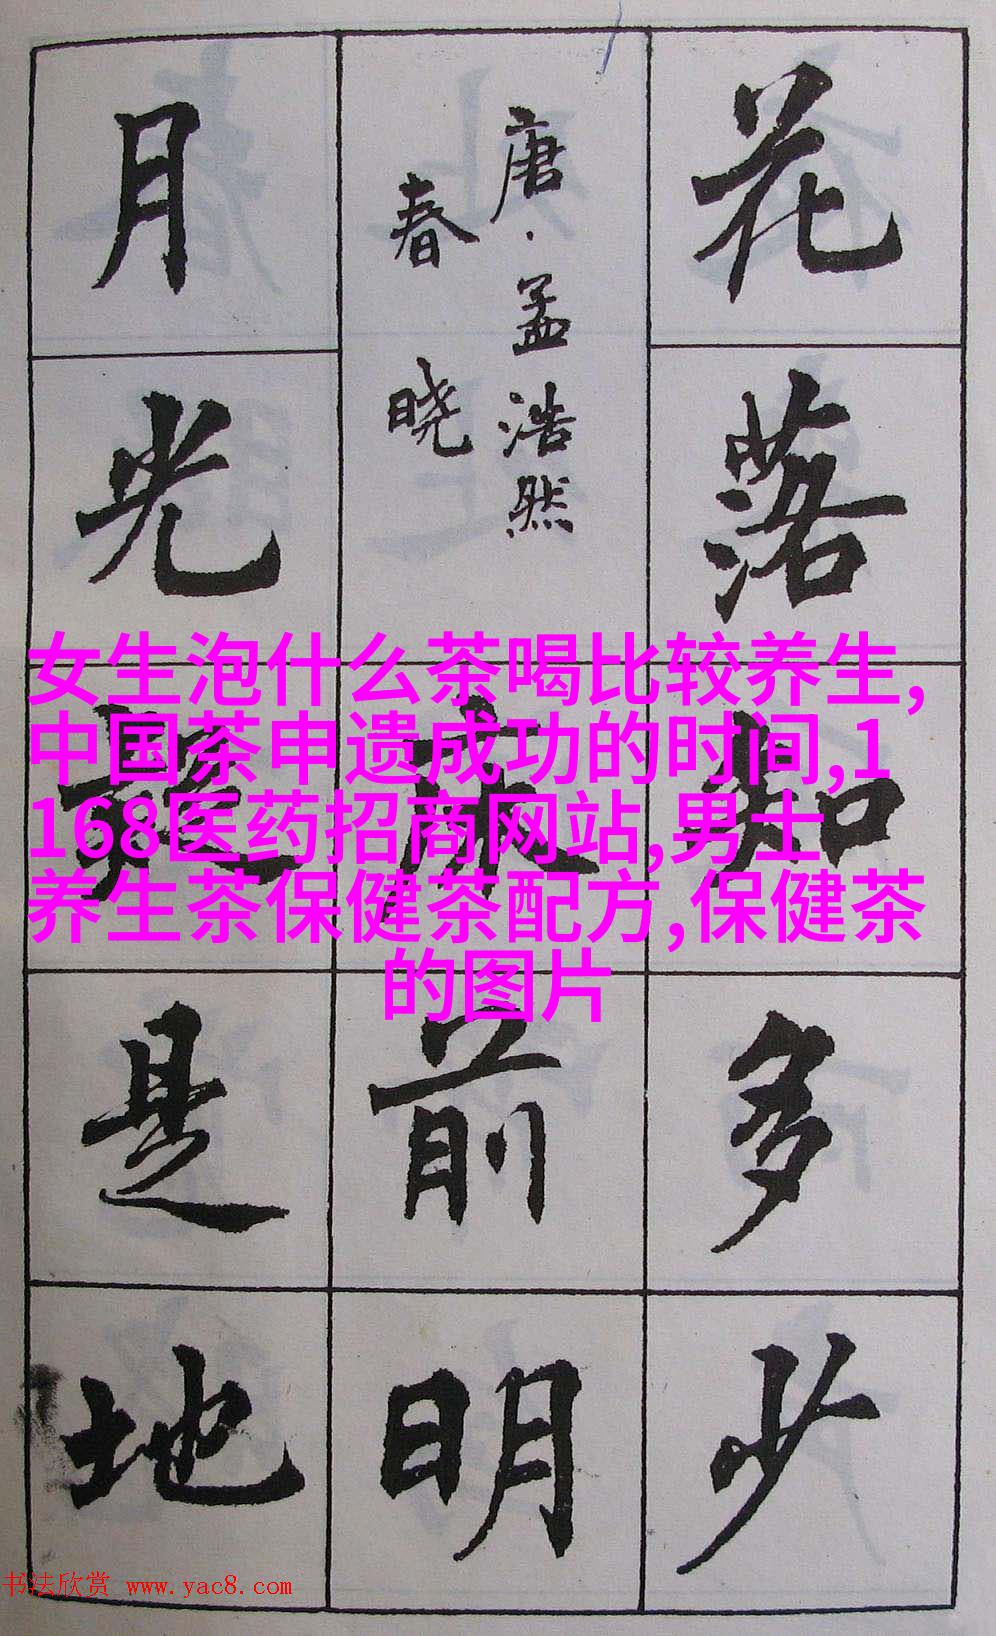 花落知多少
唐·孟浩然
春晓
床前明
月光疑是地
女生泡什么茶喝比较养生,
中国茶申遗成功的时间,1
168医药招商网站,男士
养生茶保健茶配方,保健茶
的图片
书法欣赏 www.yac8.com